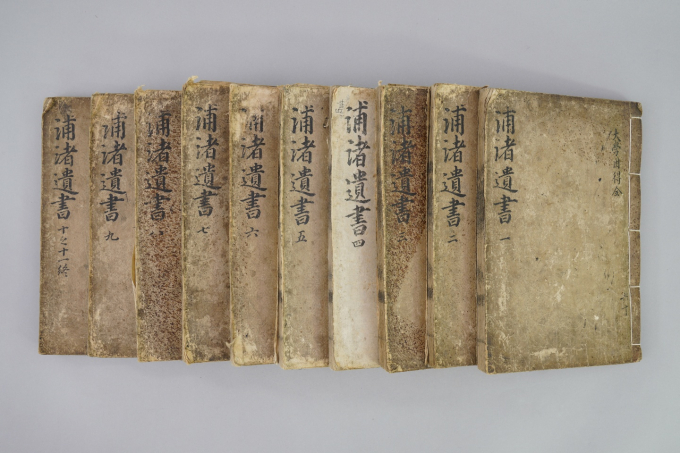 浦渚遺書 一
浦渚遺書 二
浦渚遺書
浦渚遺書 四
浦渚遺書 五
浦渚遺書 六
浦渚遺書 七
浦渚遺書
浦渚遺書 九
浦渚遺書 十之十一終